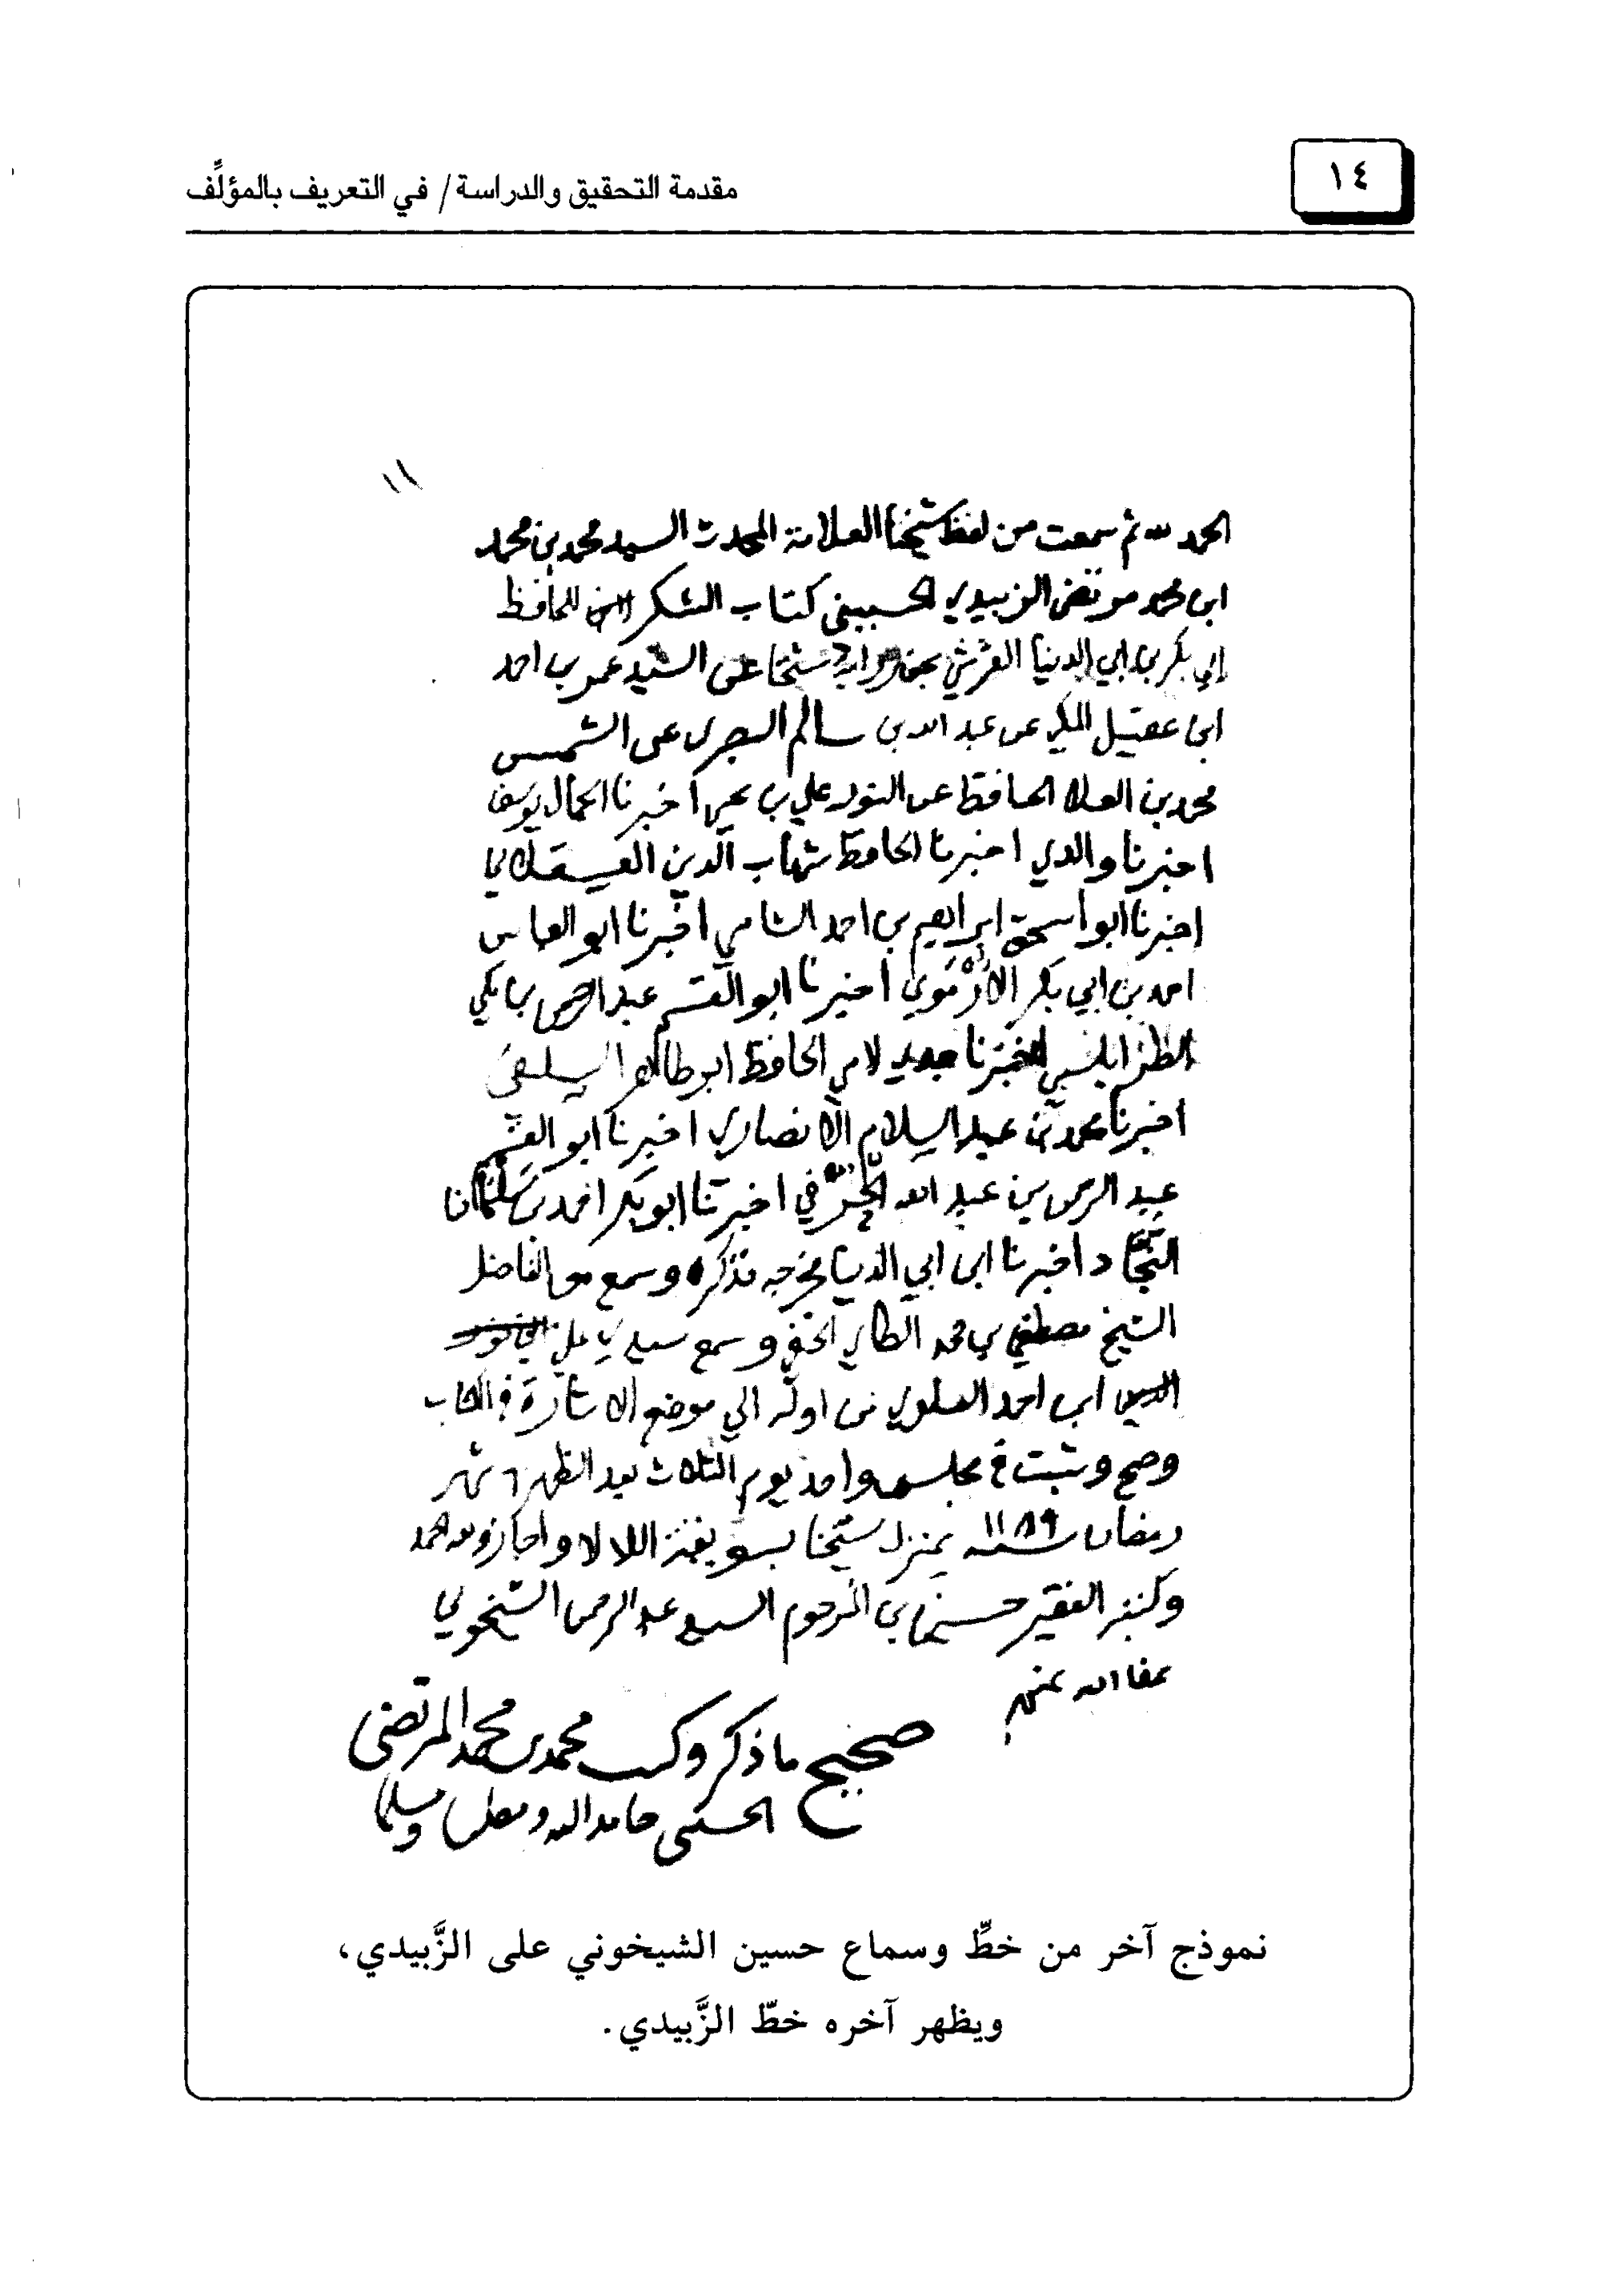 ١٤
مقدمة التحقيق والدراسة / في التعريف بالمؤلِّف
١١
الحمد لله ثم سمعت من لفظ شيخنا العلامة المحدث السيد محمد بن محمد
ابن محمد مرتضى الزبيدي الحسيني كتاب الشكر للحافظ
ابي بكر بن ابي الدنيا القرشي شيخنا على السيد عمر بن احمد
ابن عقيل المكي عن عبد الله بن سالم البصري عن الشمس
محمد بن العلاء الحافظ عن النور علي بن يحيى اخبرنا الجمال يوسف
اخبرنا والدي اخبرنا الحافظ شهاب الدين العسقلاني
اخبرنا ابو اسحق ابراهيم بن احمد الشامي اخبرنا ابو العباس
احمد بن ابي بكر الارموي اخبرنا ابو القسم عبد الرحمن بن مكي
الطرابلسي اخبرنا جدي لامي الحافظ ابو طاهر السلفي
اخبرنا محمد بن عبد السلام الانصاري اخبرنا ابو القسم
عبد الرحمن بن عبيد الله الحرفي اخبرنا ابو بكر احمد بن سلمان
النجاد اخبرنا ابن ابي الدنيا مخرجه فذكره وسمع معي الفاضل
الشيخ مصطفى بن محمد الطائي الحنفي وسمع سيدي علي
ابن احمد العلوي من اوله الى موضع الاشارة في الكتاب
وصح وثبت في مجلس واحد يوم الثلاث بعد الظهر ٦ شهر
رمضان سنة ١١٨٩ بمنزل شيخنا بسويقة اللالا واجاز ولله الحمد
وكتبه الفقير حسين بن المرحوم السيد عبد الرحمن الشيخوني
عفا الله عنهم
صحيح ما ذكر وكتب محمد بن محمد المرتضى
الحسيني حامدا لله ومصليا ومسلما
نموذج آخر من خطِّ وسماع حسين الشيخوني على الزَّبيدي،
ويظهر آخره خطّ الزَّبيدي.